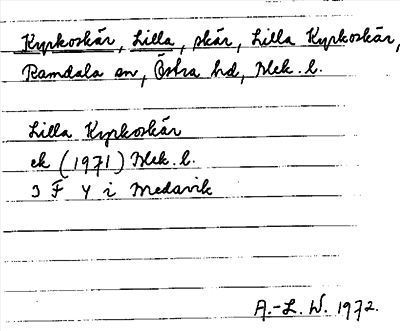 Kyrkoskär, Lilla, skär, Lilla Kyrkoskär,
Ramdala sn, Östra hd, Blek. l.
Lilla Kyrkoskär
ek (1971) Blek. l.
3 F 4 i Medavik
A.-L. W. 1972.